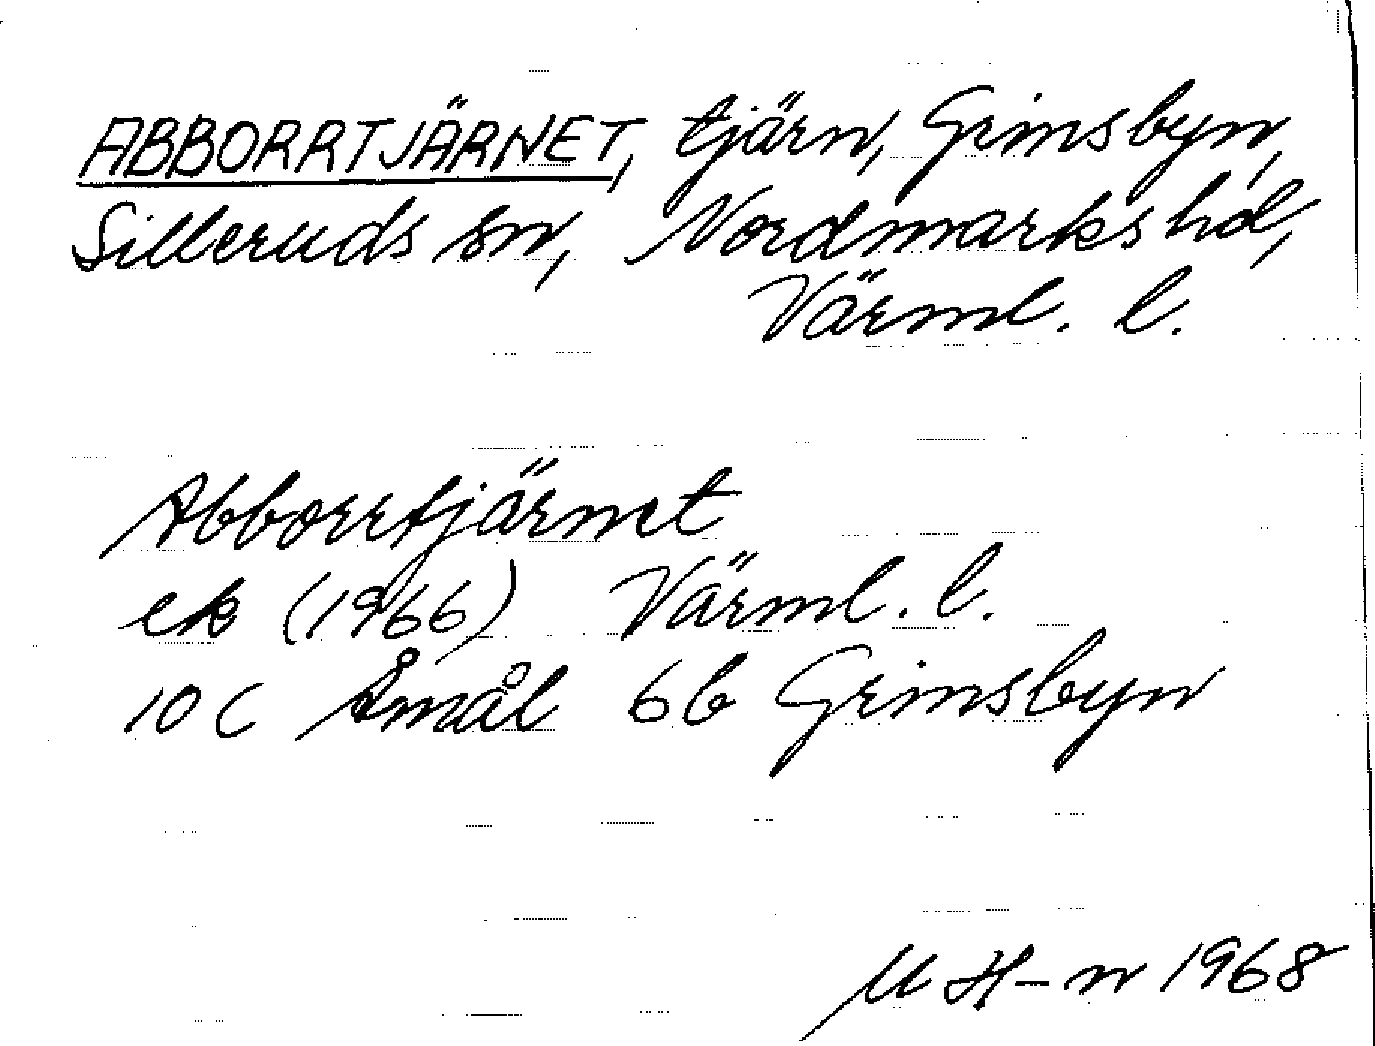 ABBORRTJÄRNET, tjärn, Grimsbyn,
Silleruds sn, Nordmarks hd,
Värml. l.
Abborrtjärnet
ek (1966) Värml. l.
10 C Åmål 6b Grimsbyn
M H-n 1968